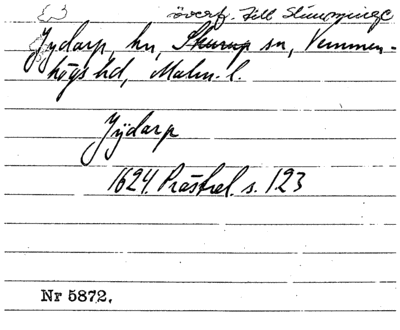 överf. till Slimminge
Jydarp, hn, Skurup sn, Vemmen-
högs hd, Malm. l.
Jÿdarp
1624. Prästrel. s. 123
Nr 5872.